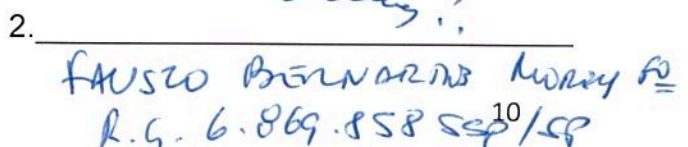 2.
FAUSTO BERNARDES MOREY Fº
R.G. 6.869.858 SSP/SP
10